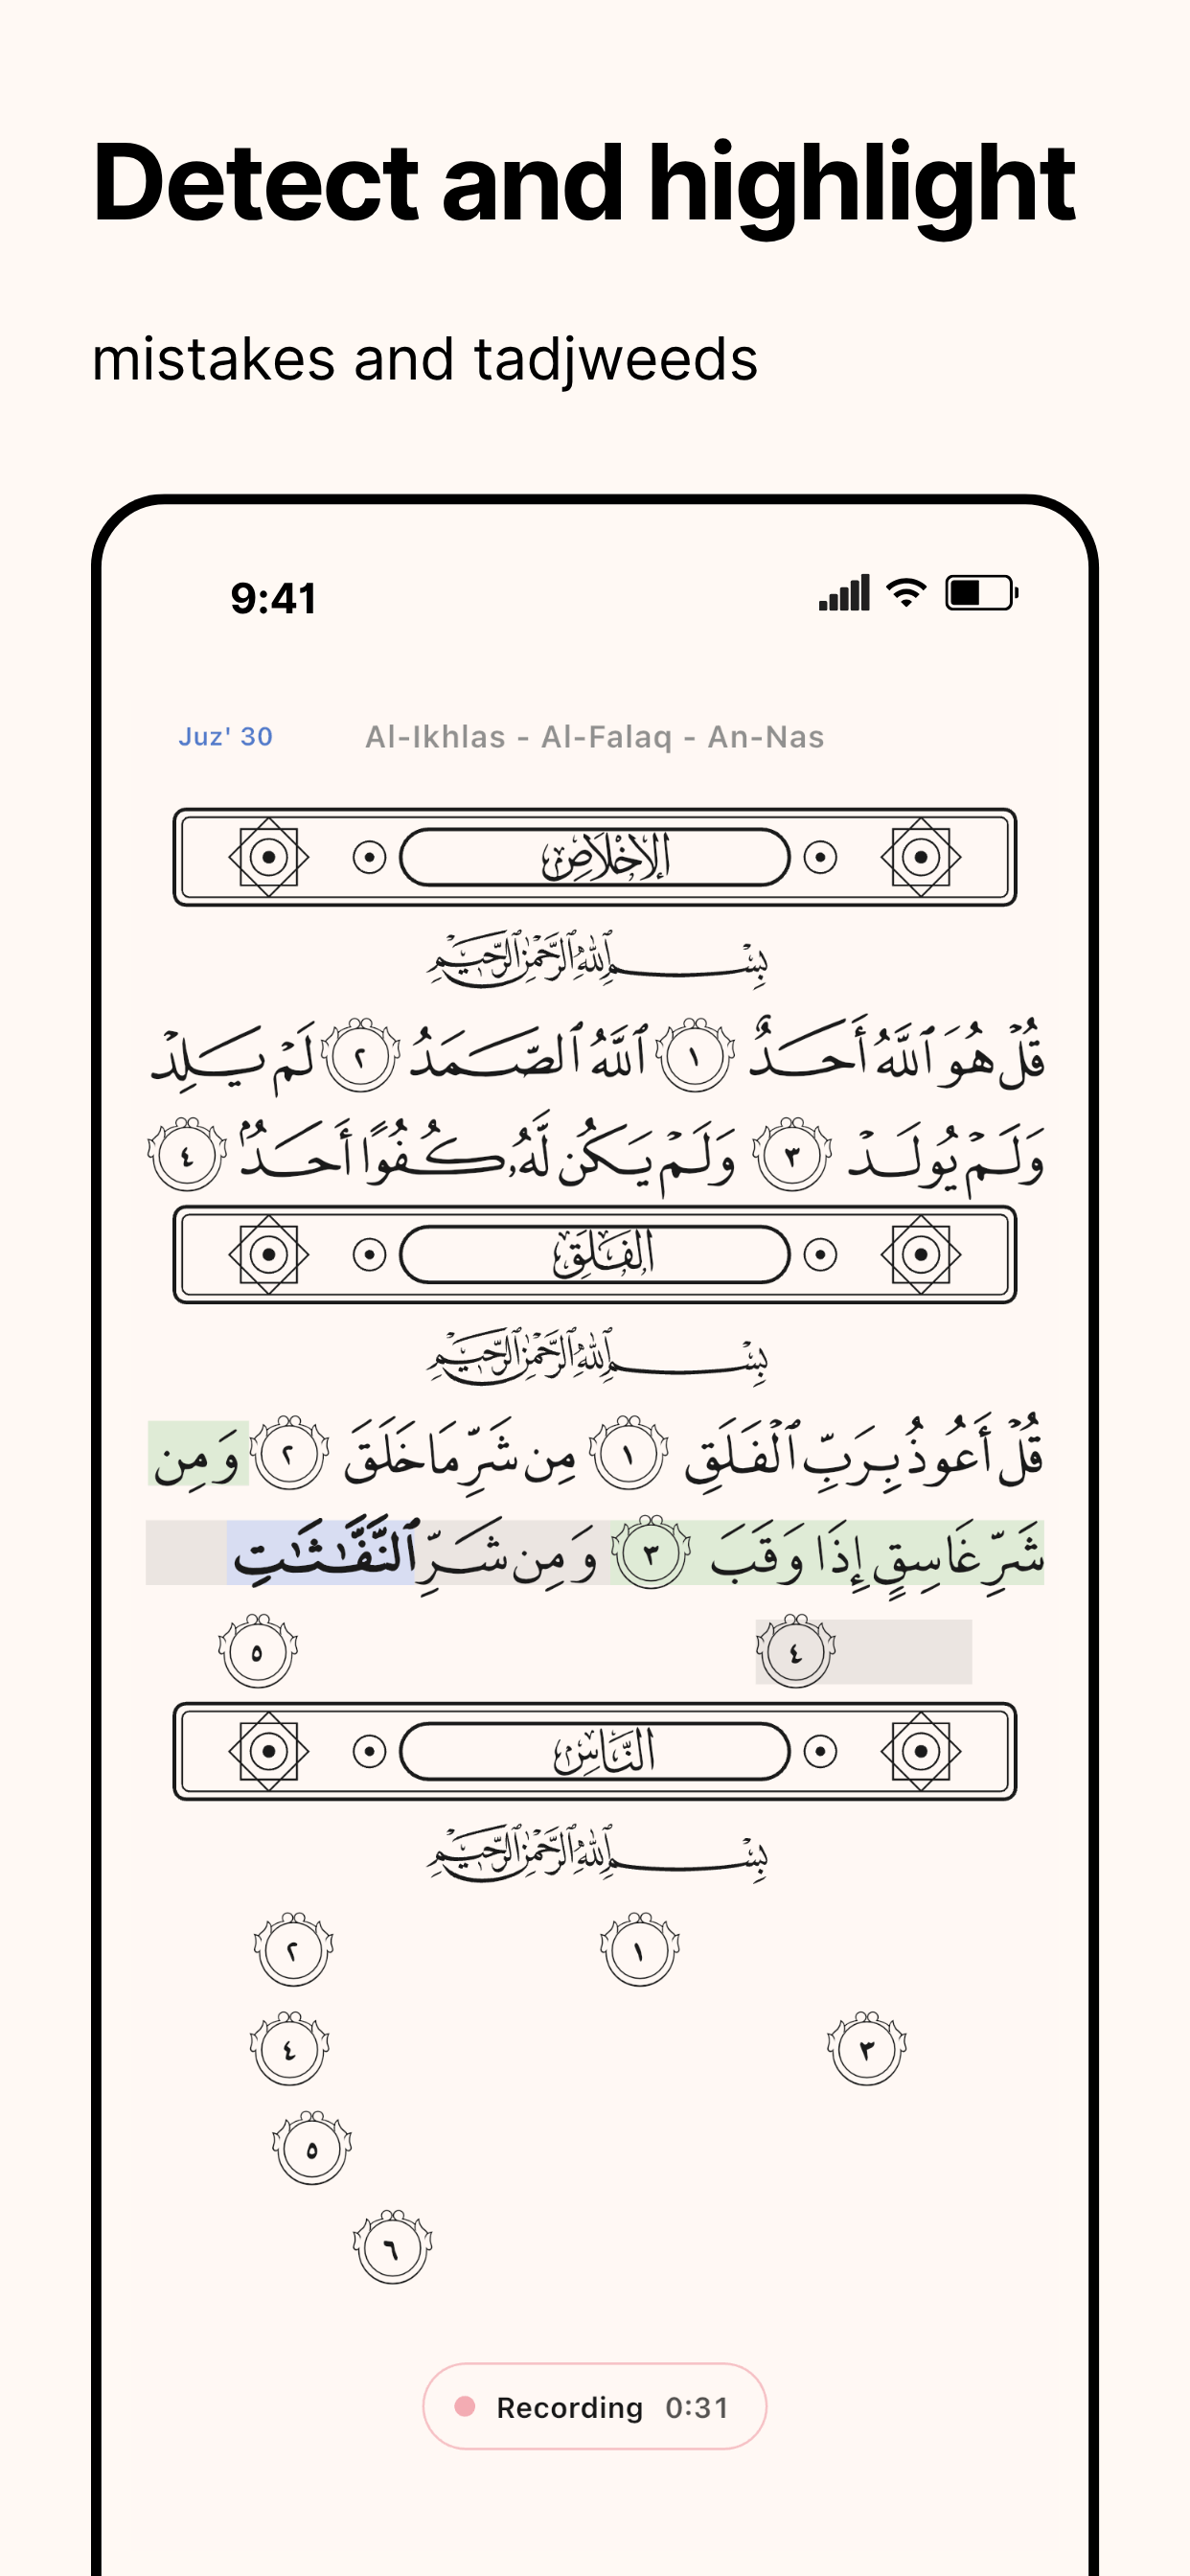 Detect and highlight
mistakes and tadjweeds
9:41
Juz' 30 Al-Ikhlas - Al-Falaq - An-Nas
الإخلاص
بِسْمِ ٱللَّهِ ٱلرَّحْمَٰنِ ٱلرَّحِيمِ
قُلْ هُوَ ٱللَّهُ أَحَدٌ ١ ٱللَّهُ ٱلصَّمَدُ ٢ لَمْ يَلِدْ
وَلَمْ يُولَدْ ٣ وَلَمْ يَكُن لَّهُۥ كُفُوًا أَحَدٌۢ ٤
الفَلَق
بِسْمِ ٱللَّهِ ٱلرَّحْمَٰنِ ٱلرَّحِيمِ
قُلْ أَعُوذُ بِرَبِّ ٱلْفَلَقِ ١ مِن شَرِّ مَا خَلَقَ ٢ وَمِن
شَرِّ غَاسِقٍ إِذَا وَقَبَ ٣ وَمِن شَرِّ ٱلنَّفَّٰثَٰتِ
٤ ٥
النَّاس
بِسْمِ ٱللَّهِ ٱلرَّحْمَٰنِ ٱلرَّحِيمِ
١ ٢
٣ ٤
٥
٦
Recording 0:31